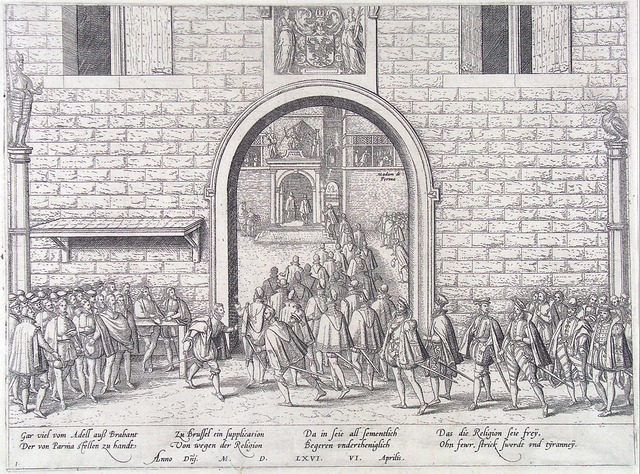 Madam de
Parma
Gar viel vom Adell auß Brabant
Der von Parma stellen zu handt:
Zu Brussel ein supplication
Von wegen der Religion
Da in seie all sementlich
Begeren vndertheniglich
Das die Religion seie frey,
Ohn feur, strick swerdt vnd tÿranneÿ.
Anno Dñj. M. D. LXVI. VI. Aprilis.
1.